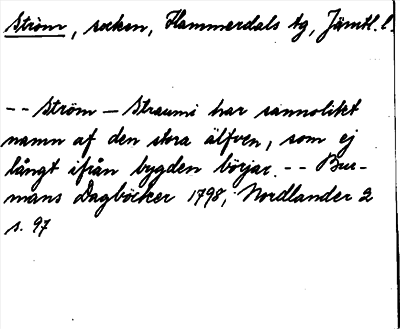 Ström, socken, Hammerdals tg, Jämtl. l.
-- Ström – Straumi har sannolikt
namn af den stora älfven, som ej
långt ifrån bygden börjar. -- Bur-
mans Dagböcker 1798; Nordlander 2
s. 97